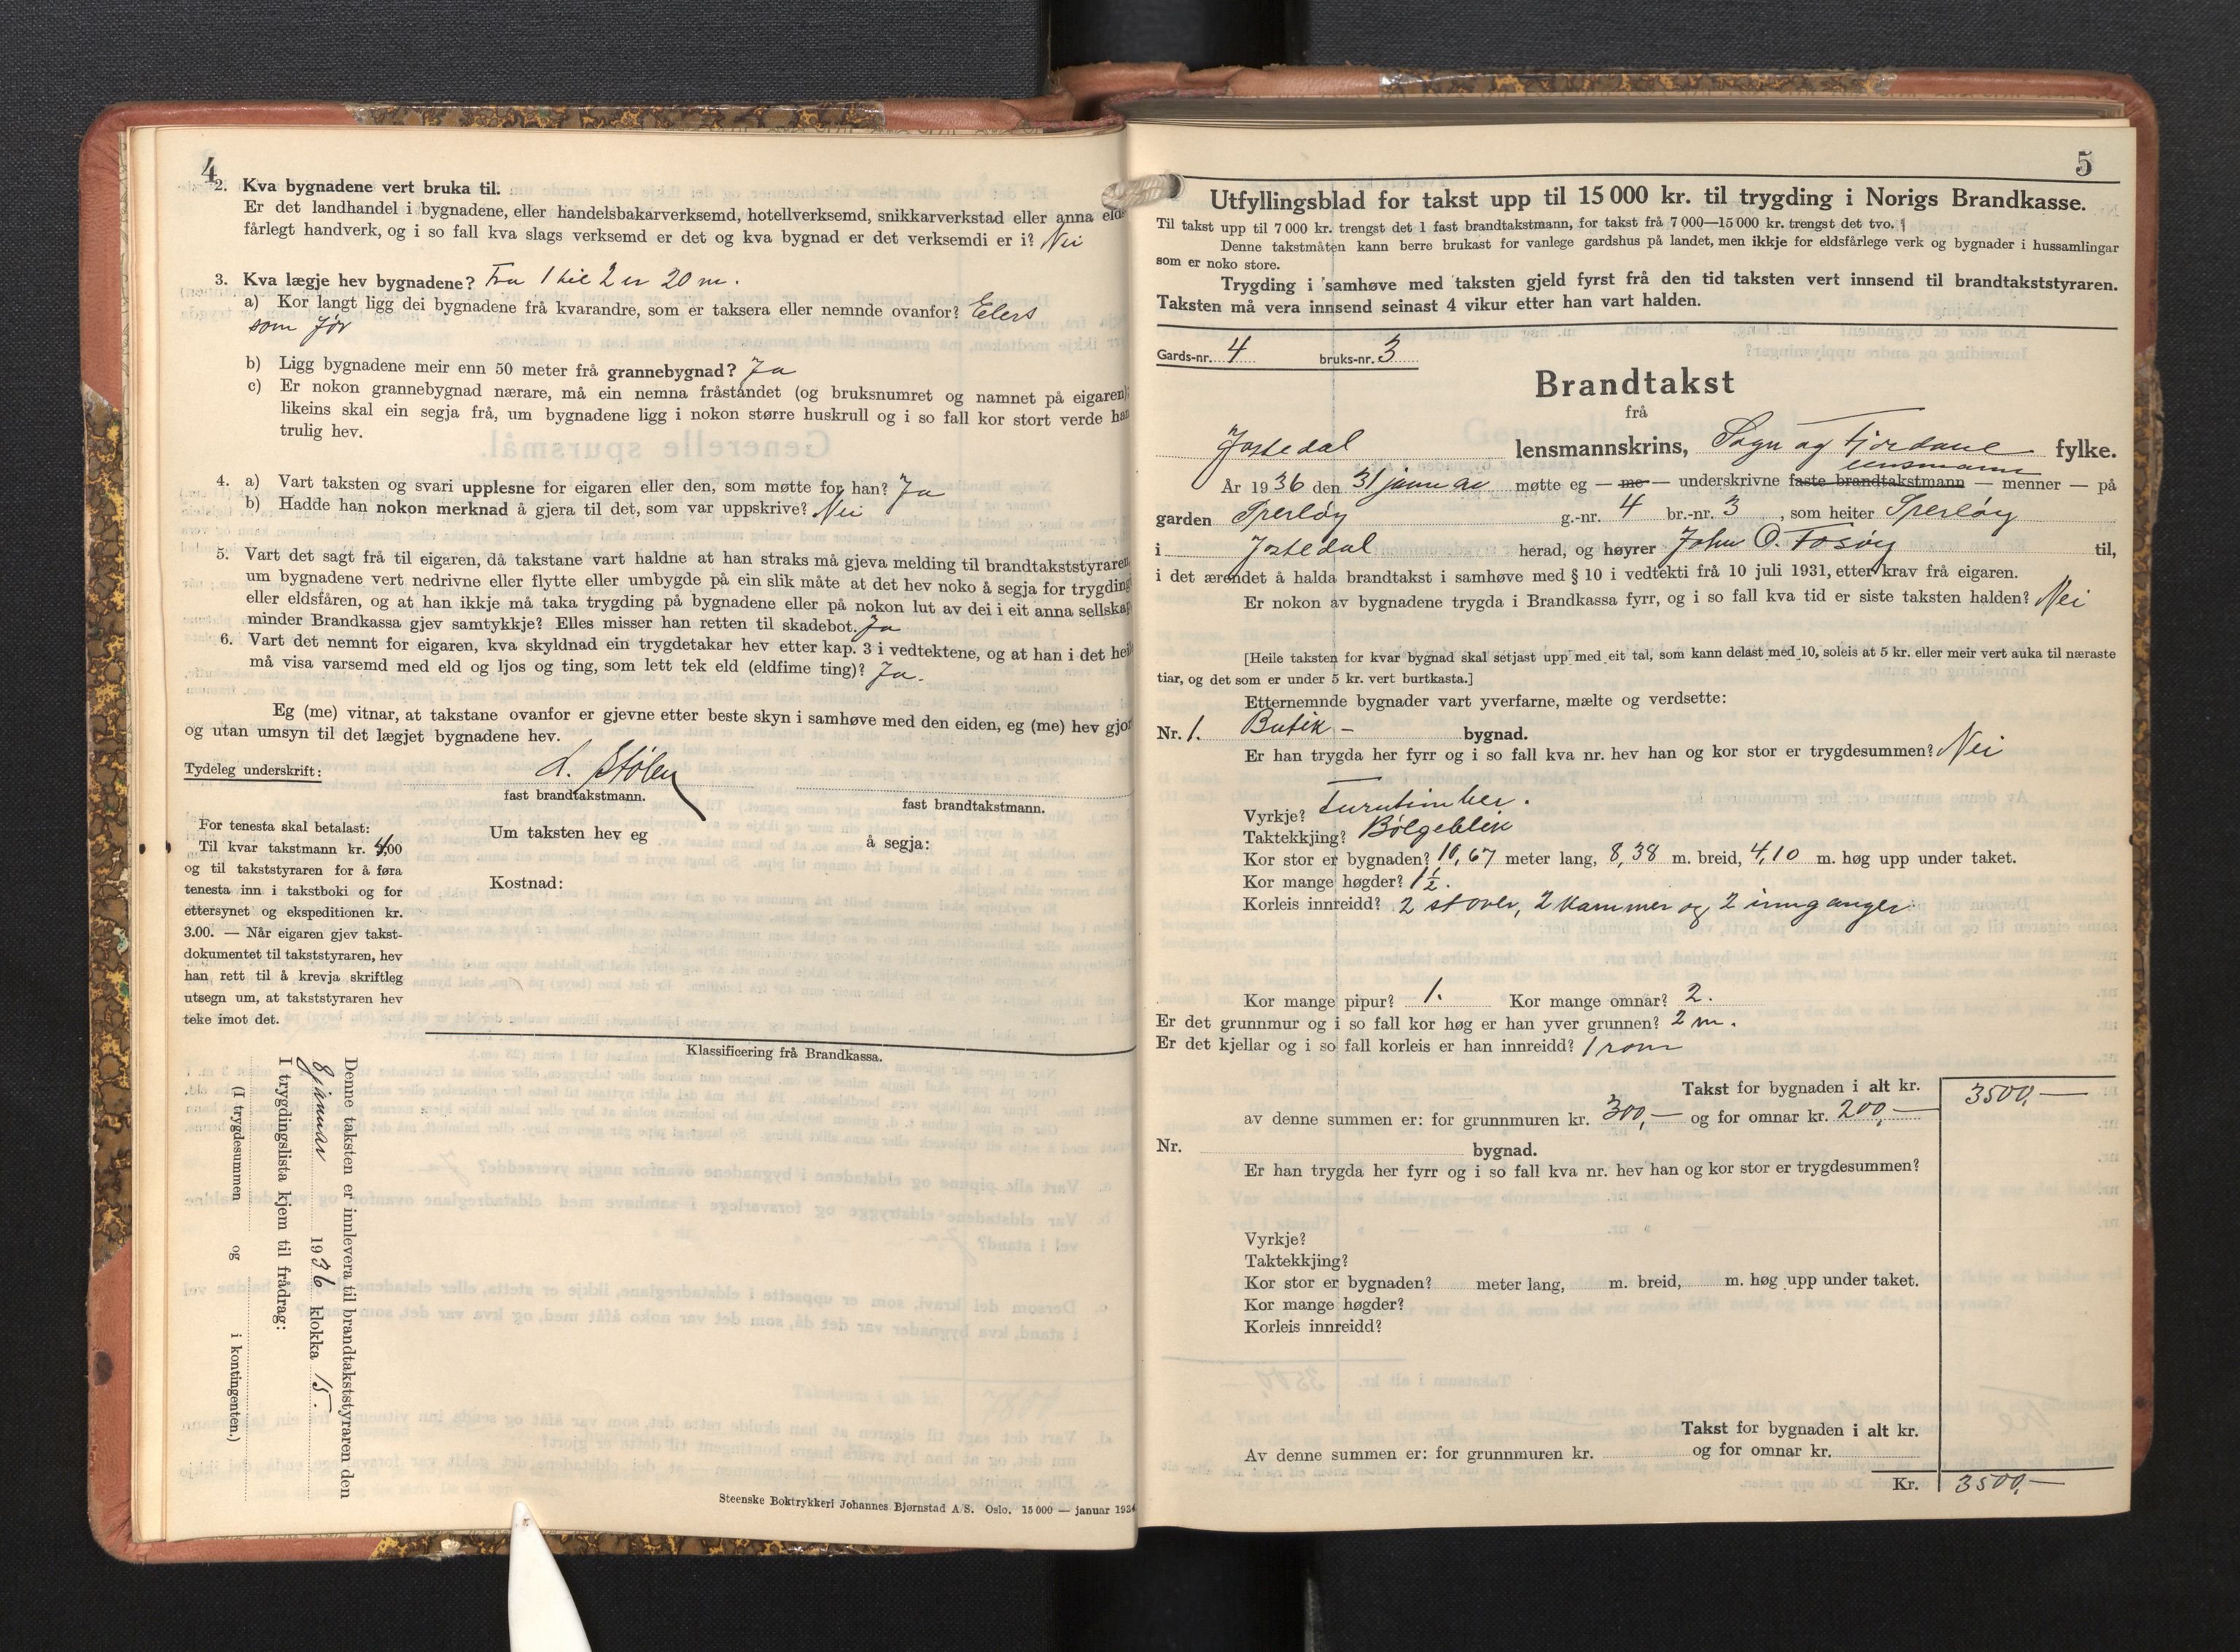 4
2. Kva bygnadene vert bruka til.
Er det landhandel i bygnadene, eller handelsbakarverksemd, hotellverksemd, snikkarverkstad eller anna elds-
fårlegt handverk, og i so fall kva slags verksemd er det og kva bygnad er det verksemdi er i? Nei
3. Kva lægje hev bygnadene? Fra 1 til 2 er 20 m.
a) Kor langt ligg dei bygnadene frå kvarandre, som er taksera eller nemnde ovanfor? Elers
som før
b) Ligg bygnadene meir enn 50 meter frå grannebygnad? Ja
c) Er nokon grannebygnad nærare, må ein nemna fråståndet (og bruksnumret og namnet på eigaren);
likeins skal ein segja frå, um bygnadene ligg i nokon større huskrull og i so fall kor stort verde han
trulig hev.
4. a) Vart taksten og svari upplesne for eigaren eller den, som møtte for han? Ja
b) Hadde han nokon merknad å gjera til det, som var uppskrive? Nei
5. Vart det sagt frå til eigaren, då takstane vart haldne at han straks må gjeva melding til brandtakststyraren,
um bygnadene vert nedrivne eller flytte eller umbygde på ein slik måte at det hev noko å segja for trygding
eller eldsfåren, og at han ikkje må taka trygding på bygnadene eller på nokon lut av dei i eit anna sellskap
minder Brandkassa gjev samtykkje? Elles misser han retten til skadebot. Ja
6. Vart det nemnt for eigaren, kva skyldnad ein trygdetakar hev etter kap. 3 i vedtektene, og at han i det heile
må visa varsemd med eld og ljos og ting, som lett tek eld (eldfime ting)? Ja.
Eg (me) vitnar, at takstane ovanfor er gjevne etter beste skyn i samhøve med den eiden, eg (me) hev gjort
og utan umsyn til det lægjet bygnadene hev.
Tydeleg underskrift: L. Stølen
fast brandtakstmann. fast brandtakstmann.
For tenesta skal betalast:
Til kvar takstmann kr. 4,00
og til takststyraren for å føra
tenesta inn i takstboki og for
ettersynet og ekspeditionen kr.
3.00. — Når eigaren gjev takst-
dokumentet til takststyraren, hev
han rett til å krevja skriftleg
utsegn um, at takststyraren hev
teke imot det.
Um taksten hev eg å segja:
Kostnad:
Klassificering frå Brandkassa.
Denne taksten er innlevera til brandtakststyraren den
8 januar 1936 klokka 15.
I trygdingslista kjem til frådrag:
(I trygdesummen og i kontingenten.)
Steenske Boktrykkeri Johannes Bjørnstad A/S. Oslo. 15 000 — januar 1934
5
Utfyllingsblad for takst upp til 15 000 kr. til trygding i Norigs Brandkasse.
Til takst upp til 7 000 kr. trengst det 1 fast brandtakstmann, for takst frå 7 000—15 000 kr. trengst det tvo.
Denne takstmåten kann berre brukast for vanlege gardshus på landet, men ikkje for eldsfårlege verk og bygnader i hussamlingar
som er noko store.
Trygding i samhøve med taksten gjeld fyrst frå den tid taksten vert innsend til brandtakststyraren.
Taksten må vera innsend seinast 4 vikur etter han vart halden.
Gards-nr. 4 bruks-nr. 3
Brandtakst
frå
Jostedal lensmannskrins, Sogn og Fjordane fylke.
lensmann
År 1936 den 31 januar møtte eg — me — underskrivne faste brandtakstmann — menner — på
garden Sperløy g.-nr. 4 br.-nr. 3, som heiter Sperløy
i Jostedal herad, og høyrer John O. Fosøy til,
i det ærendet å halda brandtakst i samhøve med § 10 i vedtekti frå 10 juli 1931, etter krav frå eigaren.
Er nokon av bygnadene trygda i Brandkassa fyrr, og i so fall kva tid er siste taksten halden? Nei
[Heile taksten for kvar bygnad skal setjast upp med eit tal, som kann delast med 10, soleis at 5 kr. eller meir vert auka til næraste
tiar, og det som er under 5 kr. vert burtkasta.]
Etternemnde bygnader vart yverfarne, mælte og verdsette:
Nr. 1. Butik – bygnad.
Er han trygda her fyrr og i so fall kva nr. hev han og kor stor er trygdesummen? Nei
Vyrkje? Furutimber.
Taktekkjing? Bølgeblik
Kor stor er bygnaden? 10,67 meter lang, 8,38 m. breid, 4,10 m. høg upp under taket.
Kor mange høgder? 1½.
Korleis innreidd? 2 stover, 2 kammer og 2 innganger
Kor mange pipur? 1. Kor mange omnar? 2.
Er det grunnmur og i so fall kor høg er han yver grunnen? 2 m.
Er det kjellar og i so fall korleis er han innreidd? 1 rom
Takst for bygnaden i alt kr. 3500,—
av denne summen er: for grunnmuren kr. 300,— og for omnar kr. 200,—
Nr. bygnad.
Er han trygda her fyrr og i so fall kva nr. hev han og kor stor er trygdesummen?
Vyrkje?
Taktekkjing?
Kor stor er bygnaden? meter lang, m. breid, m. høg upp under taket.
Kor mange høgder?
Korleis innreidd?
Takst for bygnaden i alt kr.
Av denne summen er: for grunnmuren kr. og for omnar kr.
Kr. 3500,—